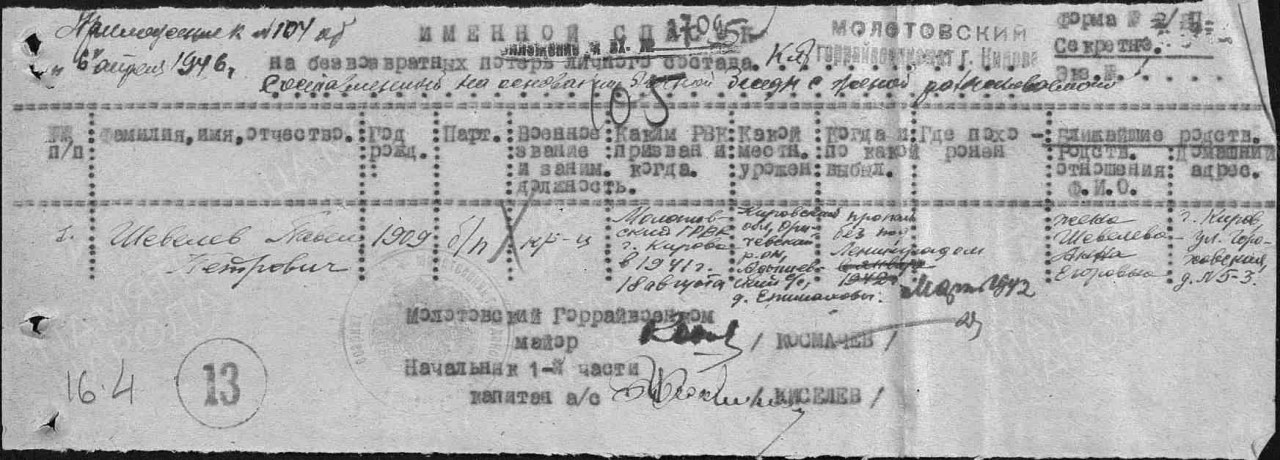 Приложение к №104 об
6 апреля 1946 г.
ИМЕННОЙ СПИСОК
на безвозвратных потерь личного состава.
МОЛОТОВСКИЙ
Горрайвоенкомат г. Кирова
Форма № 2/
Секретно.
Экз. №
Составленный на основании личной беседы с женой
№№ п/п
Фамилия, имя, отчество.
Год рожд.
Парт.
Военное звание и заним. должность.
Каким РВК призван и когда.
Какой местн. урожен.
Когда и по какой выбыл.
Где похоронен
Ближайшие родств.
Родств. отношения Ф.И.О.
Домашний адрес.
1.
Шевелев Павел
Петрович
1909
б/п
кр-ц
Молотов-
ский ГРВК
г. Кирова
в 1941 г.
18 августа
Кировская
обл, Ори-
чевский
р-он,
д.
пропал
без вес
Ленинградом
Март 1942
жена
Шевелева
Анна
Егоровна
г. Киров
ул. Горо-
ховская,
д. №5-3.
Молотовский Горрайвоенком
майор / КОСМАЧЕВ /
Начальник 1-й части
капитан а/с / КИСЕЛЕВ /
16.4
13